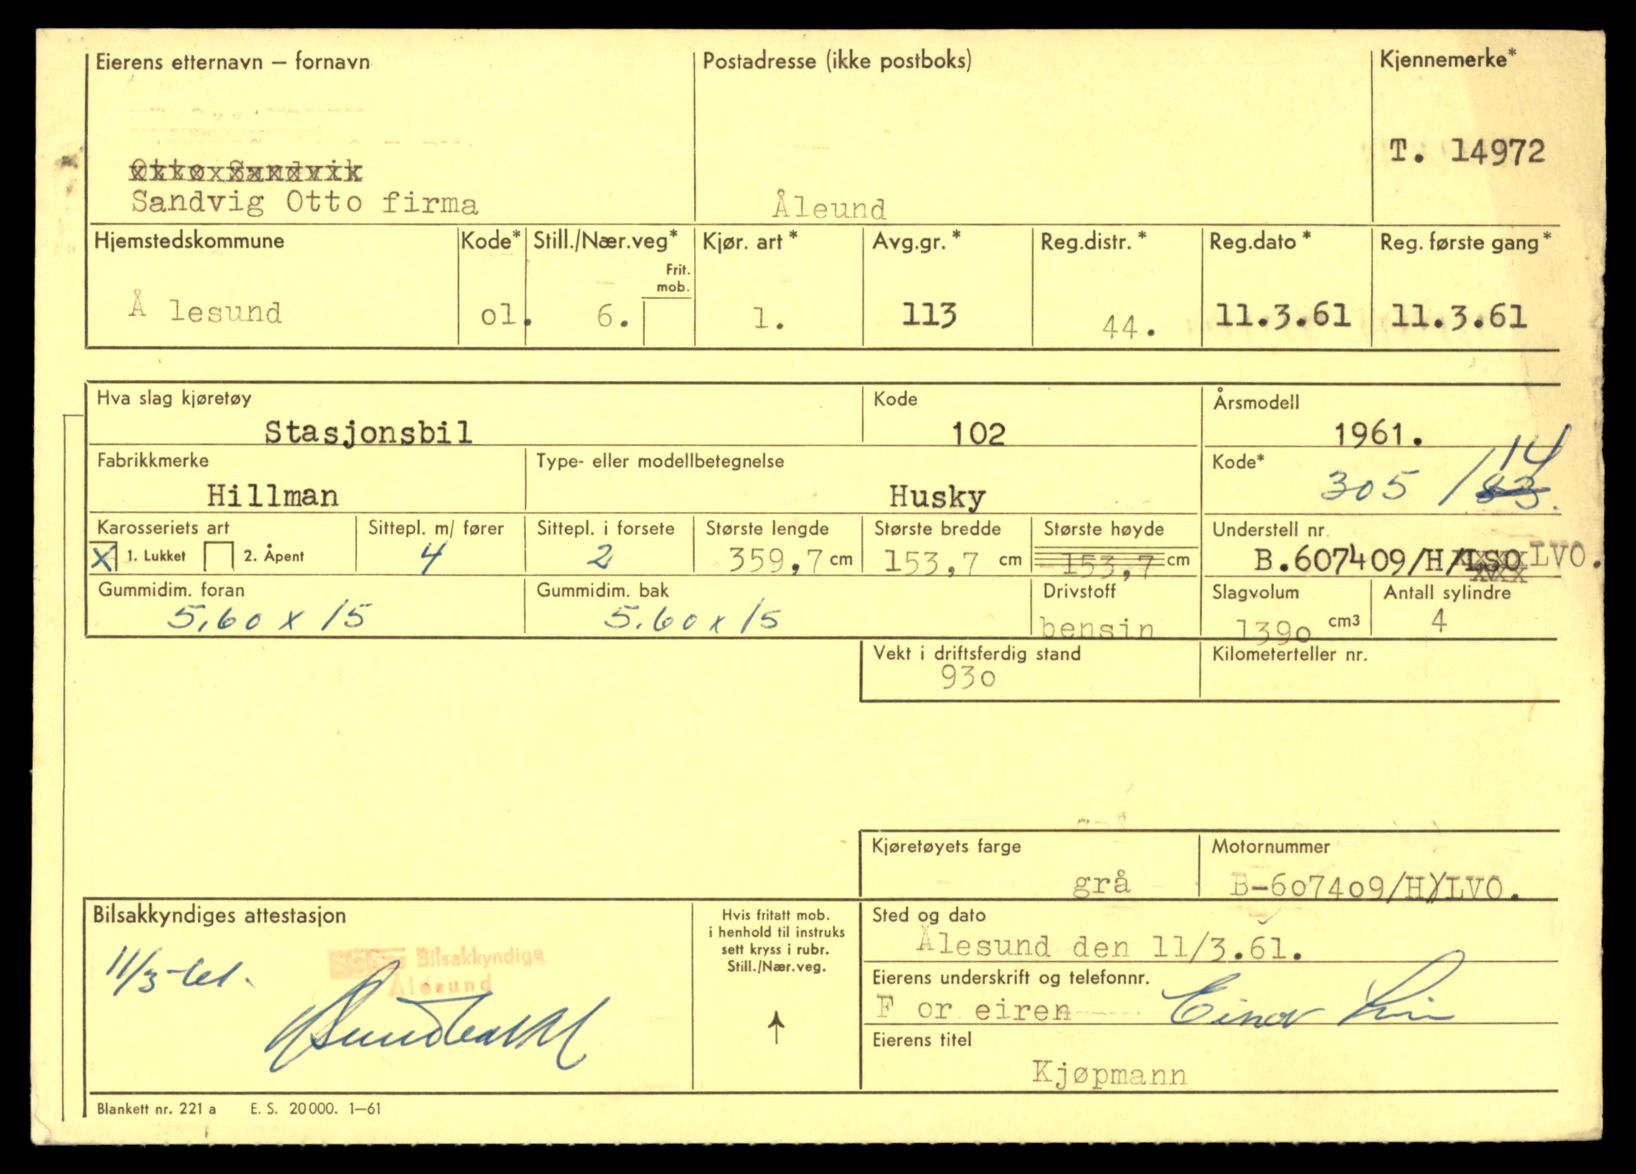 Eierens etternavn – fornavn
Postadresse (ikke postboks)
Kjennemerke*
T. 14972
Otto Sandvik
Sandvig Otto firma
Åleund
Hjemstedskommune
Kode*
Still./Nær.veg*
Kjør. art *
Avg.gr. *
Reg.distr. *
Reg.dato *
Reg. første gang *
Frit.
mob.
Å lesund
o1.
6.
1.
113
44.
11.3.61
11.3.61
Hva slag kjøretøy
Kode
Årsmodell
Stasjonsbil
102
1961.
Fabrikkmerke
Type- eller modellbetegnelse
Kode*
14
Hillman
Husky
305 / 83.
Karosseriets art
Sittepl. m/ fører
Sittepl. i forsete
Største lengde
Største bredde
Største høyde
Understell nr.
X 1. Lukket
2. Åpent
4
2
359,7 cm
153,7 cm
153,7 cm
B.607409/H/LSO LVO.
Gummidim. foran
Gummidim. bak
Drivstoff
Slagvolum
Antall sylindre
5,60 x 15
5.60 x 15
bensin
139o cm3
4
Vekt i driftsferdig stand
Kilometerteller nr.
93o
Kjøretøyets farge
Motornummer
grå
B-607409/H/LVO.
Bilsakkyndiges attestasjon
Hvis fritatt mob.
i henhold til instruks
sett kryss i rubr.
Still./Nær.veg.
Sted og dato
Ålesund den 11/3.61.
11/3-61.
Bilsakkyndige
Ålesund
Eierens underskrift og telefonnr.
F or eiren Einar
Eierens titel
Kjøpmann
Blankett nr. 221 a E. S. 20000. 1–61